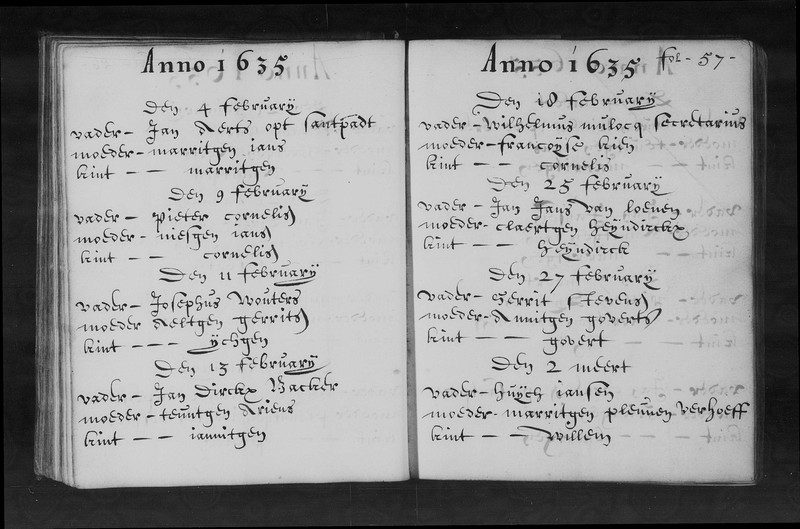 Anno 1635
Den 4 februarÿ
vader - Jan Aerts opt santpadt
moeder - marritgen jans
kint - - marritgen
Den 9 februarÿ
vader - pieter cornelis
moeder - niesgen jans
kint - - cornelis
Den 11 februarÿ
vader - Josephus Wouters
moeder Aeltgen gerrits
kint - - - ÿchgen
Den 15 februarÿ
vader - Jan Dirckx Backer
moeder - teuntgen Ariens
kint - - jannitgen
Anno 1635 fol - 57 -
Den 18 februarÿ
vader - Wilhelmus mulocq secretarius
moeder - francoÿse kien
kint - - cornelis
Den 25 februarÿ
vader - Jan Jans van loenen
moeder - claertgen heÿndirckx
kint - - heÿndirck
Den 27 februarÿ
vader - Gerrit Stevens
moeder - Annitgen goverts
kint - - - govert
Den 2 meert
vader - huÿch jansen
moeder - marritgen pleunen verhoeff
kint - - Willem